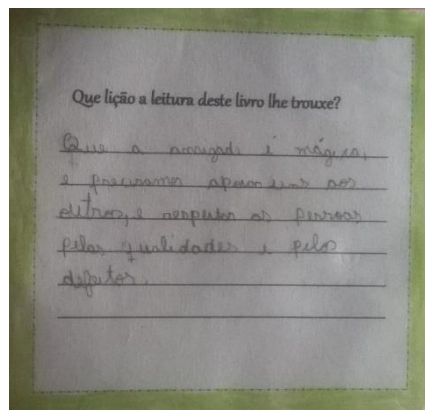 Que lição a leitura deste livro lhe trouxe?
Que a amizade é mágica,
e precisamos apoiar uns aos
outros, e respeitar as pessoas
pelas qualidades e pelos
defeitos.